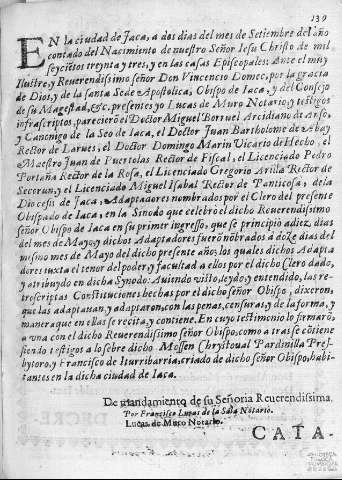 139
EN la ciudad de Iaca, a dos dias del mes de Setiembre del año
contado del Nacimiento de nuestro Señor Iesu Christo de mil
seycietos treynta y tres, y en las casas Episcopales: Ante el muy
Ilustre, y Reuerendissimo señor Don Vincencio Domec, por la gracia
de Dios, y de la santa Sede Apostolica, Obispo de Iaca, y del Consejo
de su Magestad, &c. presentes yo Lucas de Muro Notario, y testigos
infrascriptos, parecierō el Doctor Miguel Borruel Arcidiano de
y Canonigo de la Seo de Iaca, el Doctor Juan Bartholome de Abay
Rector de Larues, el Doctor Domingo Marin Vicario de Hecho, el
Maestro Juan de Puertolas Rector de Fiscal, el Licenciado Pedro
Portaña Rector de la Rosa, el Licenciado Gregorio Arilla Rector de
Secorun, y el Licenciado Miguel Isabal Rector de Panticosa, de la
Diocesis de Iaca, Adaptadores nombrados por el Clero del presente
Obispado de Iaca, en la Sinodo que celebrò el dicho Reuerendissimo
señor Obispo de Iaca en su primer ingresso, que se principiò a diez dias
del mes de Mayo, y dichos Adaptadores fuerō nōbrados à doze dias del
mismo mes de Mayo del dicho presente año, los quales dichos Adapta
dores iuxta el tenor del poder, y facultad a ellos por el dicho Clero dado,
y atribuydo en dicha Synodo: Auiendo visto, leydo, y entendido, las re-
troscriptas Constituciones hechas por el dicho señor Obispo, dixeron,
que las adaptauan, y adaptaron, con las penas, censuras, y de la forma, y
manera que en ellas se recita, y contiene. En cuyo testimonio lo firmarō,
a vna con el dicho Reuerendissimo señor Obispo, como a tras se cōtiene
siendo testigos a lo sobre dicho Mossen Chrystoual Pardinilla Pres-
bytero, y Francisco de Iturribarria, criado de dicho señor Obispo, habi-
tantes en la dicha ciudad de Iaca.
De mandamiento de su Señoria Reuerendissima.
Por Francisco Lucas de la Sala Notario.
Lucas de Muro Notario.
CATA-